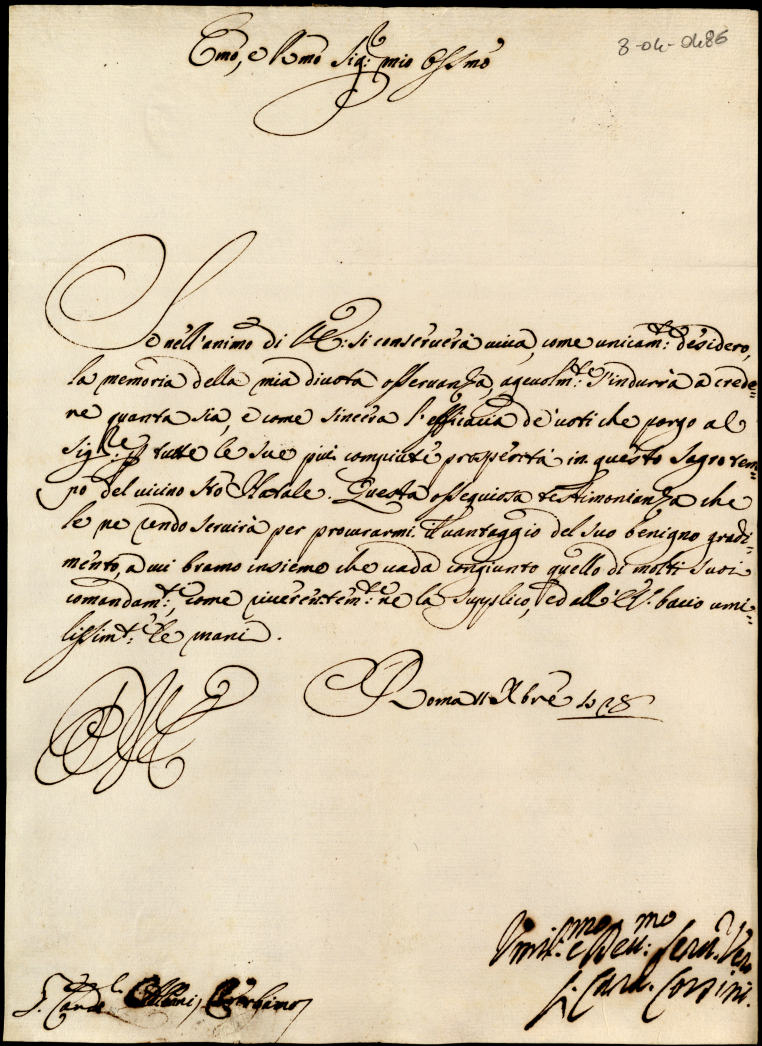 3-04-0486
Emo, e Rmo Sig.r mio Ossmo
Se nell'animo di VE: si conserverà viva, come unicam.te desidero,
la memoria della mia divota osservanza, agevolm.te s'indurrà a crede=
re quanta sia, e come sincera l'efficacia de' voti che porgo al
Sig.re p tutte le sue più compiute prosperità in questo sagro tem=
po del vicino Sto Natale. Questa ossequiosa testimonianza che
le ne rendo servirà per procurarmi il vantaggio del suo benigno gradi=
mento, a cui bramo insieme che vada congiunto quello di molti suoi
comandam.ti, come riverentem.te ne la supplico, ed all' EV. bacio umi=
lissim.te le mani.
Roma 11 Xbre
Umil.mo e Dev.mo Serv.r Vero
Card. Corsini.
S. Card.l Albani,